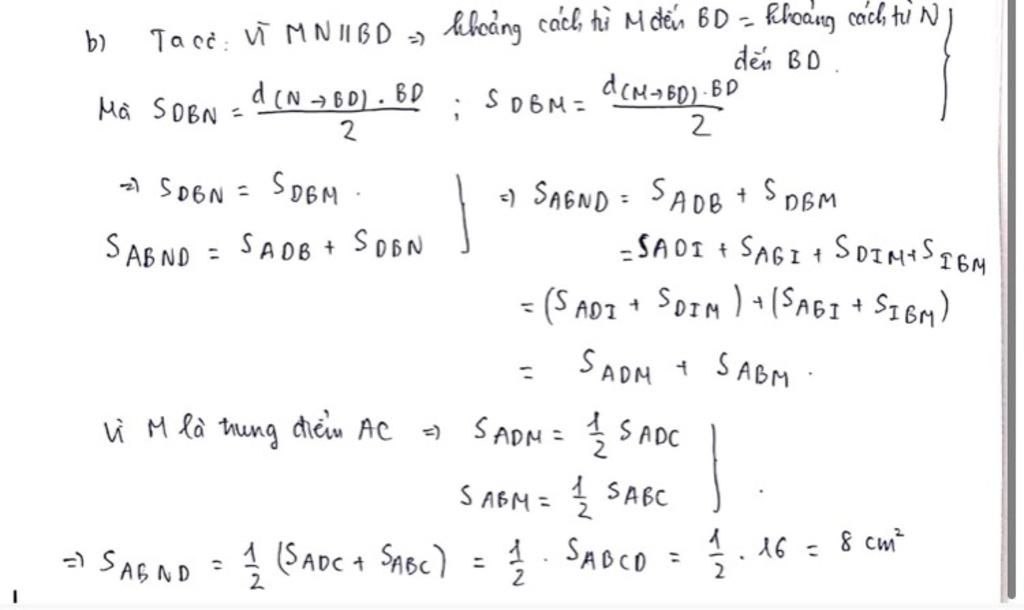 b) Ta có: Vì MN//BD => khoảng cách từ M đến BD = khoảng cách từ N đến BD.
Mà S DBN = d(N→BD).BD / 2 ; S DBM = d(M→BD).BD / 2
=> S DBN = S DBM.
S ABND = S ADB + S DBN
=> S ABND = S ADB + S DBM
= S ADI + S ABI + S DIM + S IBM
= (S ADI + S DIM) + (S ABI + S IBM)
= S ADM + S ABM.
Vì M là trung điểm AC => S ADM = 1/2 S ADC
S ABM = 1/2 S ABC
=> S ABND = 1/2 (S ADC + S ABC) = 1/2 . S ABCD = 1/2 . 16 = 8 cm²